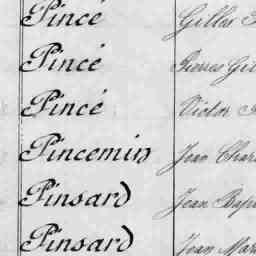 Pincé Gilles
Pincé Pierre Gil
Pincé Victor
Pincemin Jean Char
Pinsard Jean Bap
Pinsard Jean Mar